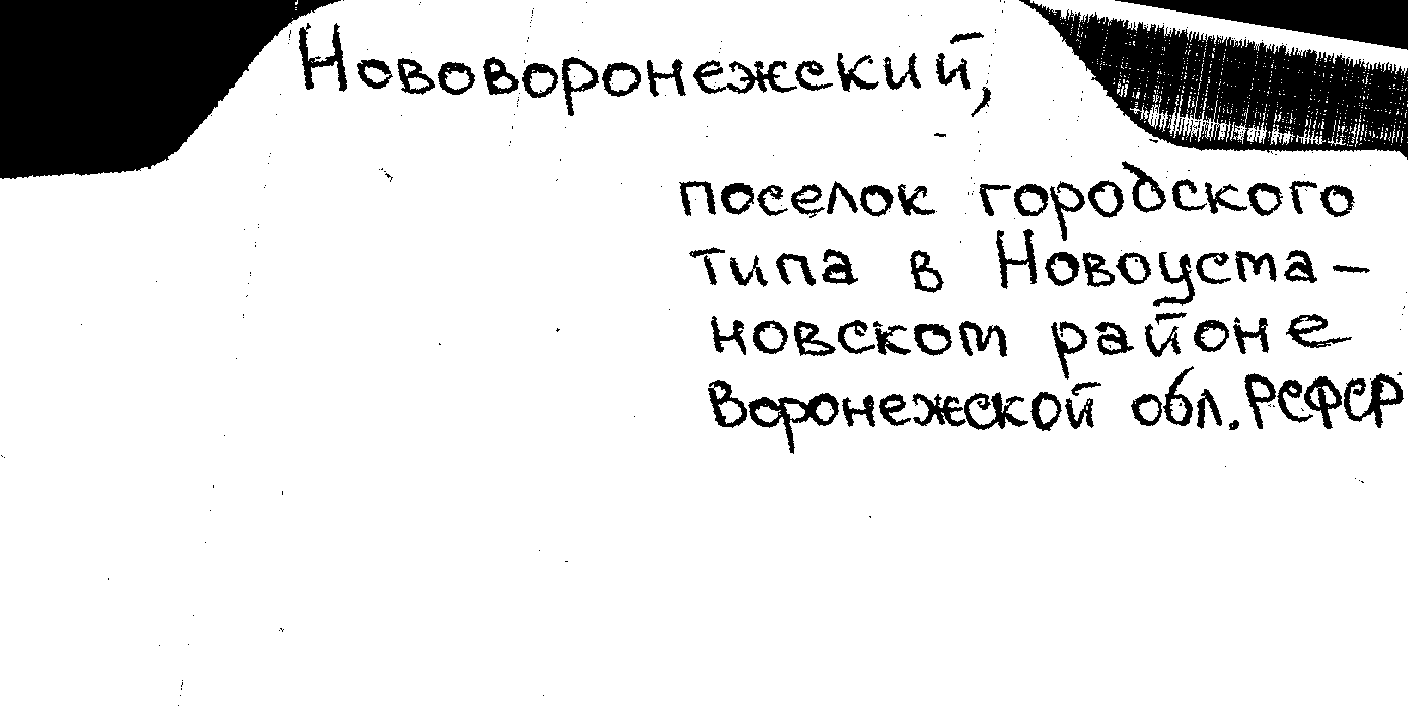 Нововоронежский,
поселок городского
типа в Новоуста-
новском районе
Воронежской обл. РСФСР